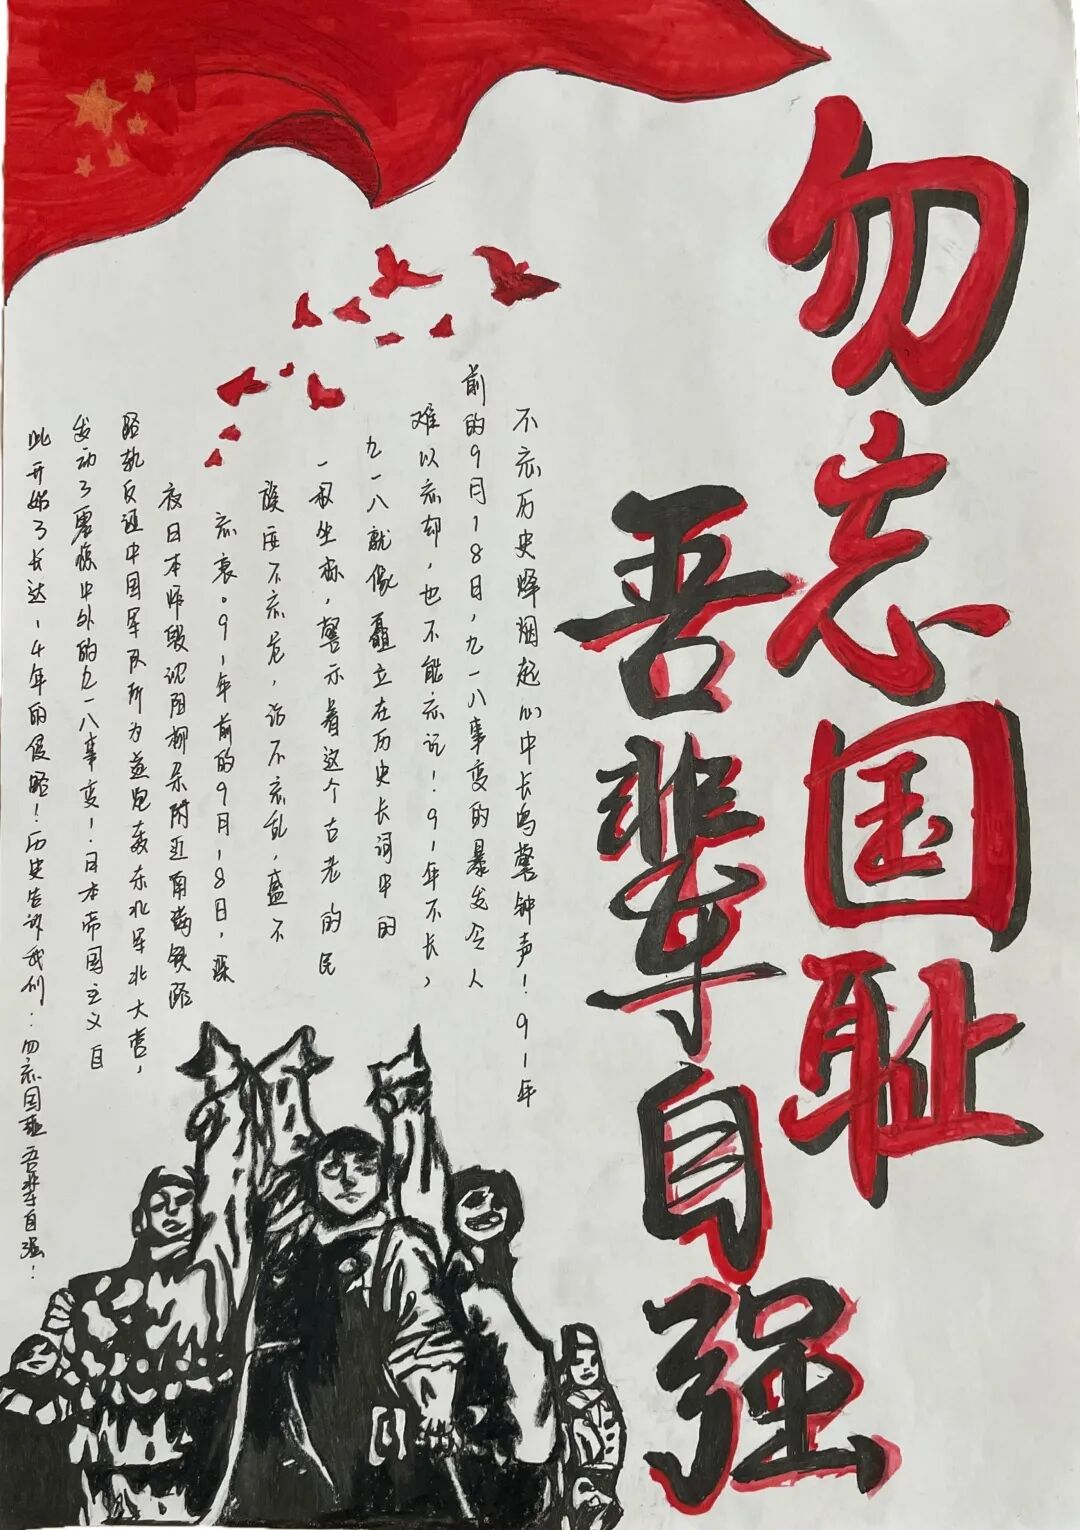 勿忘国耻
吾辈自强
不忘历史烽烟起心中长鸣警钟声!91年
前的9月18日,九一八事变的暴发令人
难以忘却,也不能忘记!91年不长,
九一八就像矗立在历史长词中的
一坐标,警示着这个古老的民
族安不忘危,治不忘乱,盛不
忘衰。91年前的9月18日,深
夜日本炸毁沈阳柳条附近南满铁路
路轨反诬中国军队所为并炮轰东北军北大营,
发动了震惊中外的九一八事变!日本帝国主义自
此开始了长达14年的侵略!历史告诉我们:勿忘国耻吾辈自强!